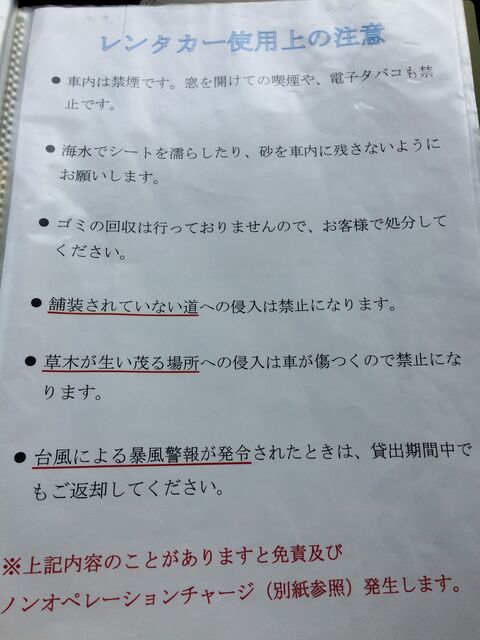 レンタカー使用上の注意
● 車内は禁煙です。窓を開けての喫煙や、電子タバコも禁
止です。
● 海水でシートを濡らしたり、砂を車内に残さないように
お願いします。
● ゴミの回収は行っておりませんので、お客様で処分して
ください。
● 舗装されていない道への侵入は禁止になります。
● 草木が生い茂る場所への侵入は車が傷つくので禁止にな
ります。
● 台風による暴風警報が発令されたときは、貸出期間中で
もご返却してください。
※上記内容のことがありますと免責及び
ノンオペレーションチャージ（別紙参照）発生します。